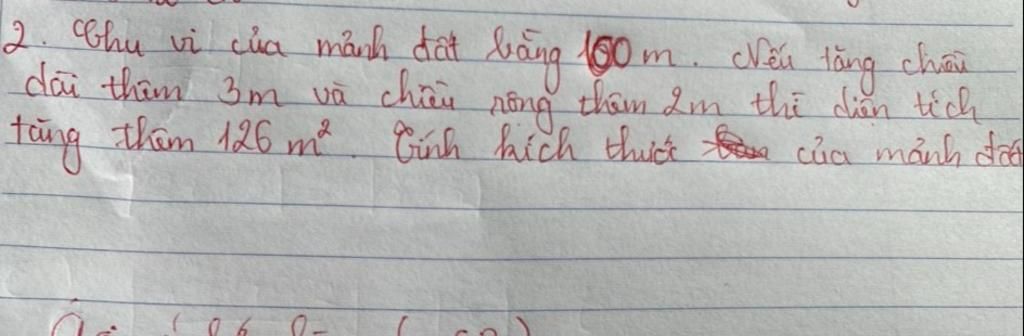 2. Chu vi của mảnh đất bằng 100 m. Nếu tăng chiều
dài thêm 3m và chiều rộng thêm 2m thì diện tích
tăng thêm 126 m². Tính kích thước của mảnh đất